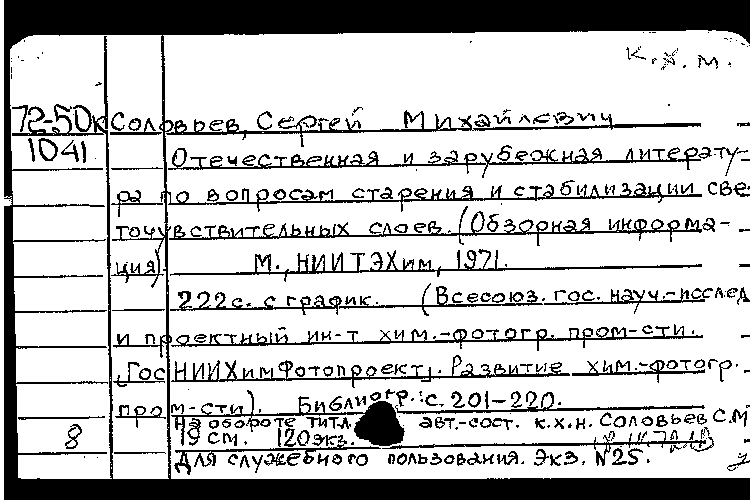 К.Х.М.
72-50к Соловьев, Сергей Михайлевич
1041 Отечественная и зарубежная литерату-
ра по вопросам старения и стабилизации све-
точувствительных слоев. (Обзорная информа-
ция). М., НИИТЭХим, 1971.
222с. с график. (Всесоюз. гос. науч.-исслед
и проектный ин-т хим.-фотогр. пром-сти.
„ГосНИИХимФотопроект„. Развитие хим.-фотогр.
пром-сти). Библиогр.: с. 201-220.
На обороте титл. авт.-сост. к.х.н. Соловьев С.М
8 19 см. 120экз.
Для служебного пользования. Экз. №25.